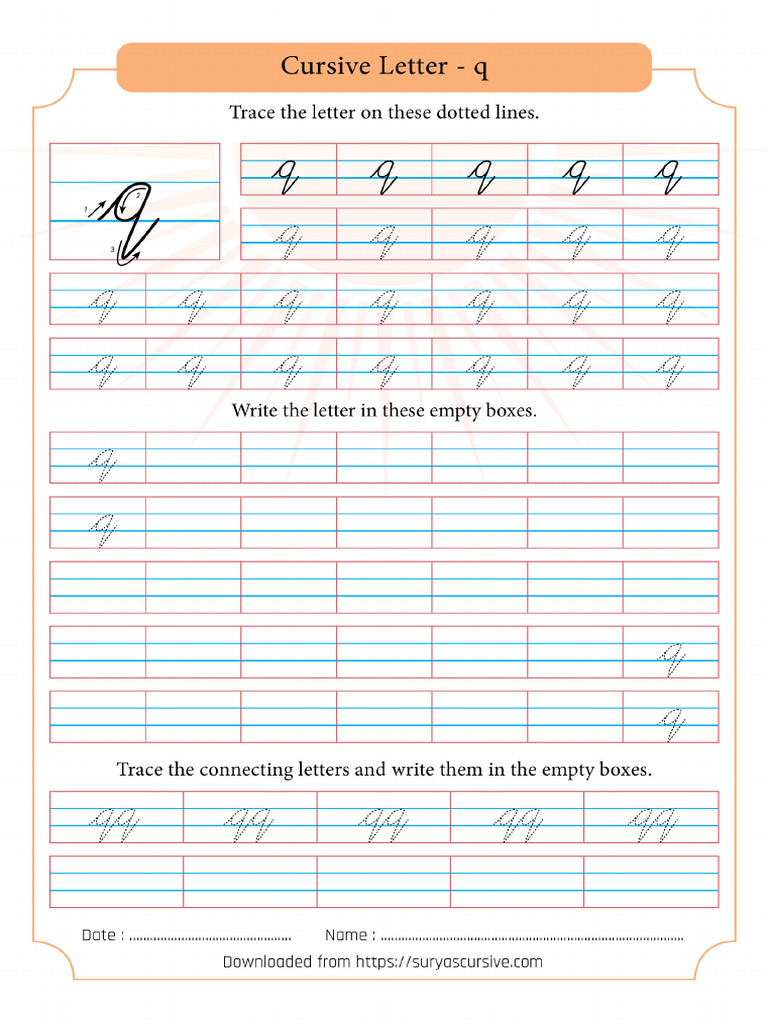 Cursive Letter - q
Trace the letter on these dotted lines.
1 2 3 q
q q q q q
q q q q q
q q q q q q q
q q q q q q q
Write the letter in these empty boxes.
q
q
q
q
Trace the connecting letters and write them in the empty boxes.
qq qq qq qq qq
Date : ................................................ Name : ................................................................................
Downloaded from https://suryascursive.com